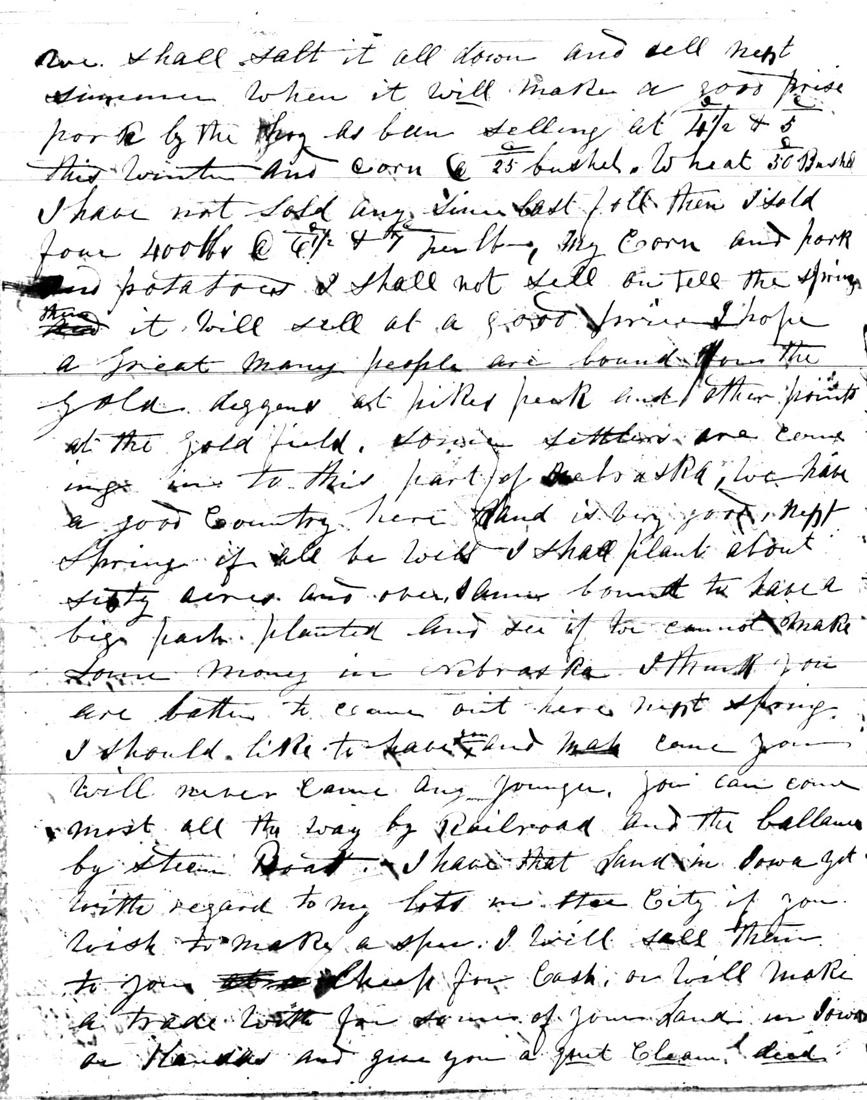 we. shall salt it all down and sell next
summer when it will make a good prise
pork by the hog as been selling at 4½ & 5
this winter and corn @ 25 bushel. Wheat 50 Bushel
I have not sold any since last fall then I sold
four 400lbs @ 6½ & 7 per lb, my Corn and pork
and potatoes I shall not sell on tell the spring
then it will sell at a good price I hope
a great many people are bound for the
gold deggens at pikes peak and other points
at the gold field. some settlers are come
ing in to this part of Nebraska, we have
a good Country here Land is very good, next
Spring if all be well I shall plant about
sixty acres and over, I am bound to have a
big patch planted and see if we cannot make
some money in Nebraska I think you
are better to come out here next spring.
I should like to have you and come you
will never come any younger. you can come
most all the way by Railroad and the ballance
by steam Boat. I have that Land in Iowa yet
with regard to my lots in the City if you
wish to make a spec. I will sell them
to you Cheep for Cash, or will make
a trade with for some of your Land in Iowa
or Kansas and give you a quit Cleam deed